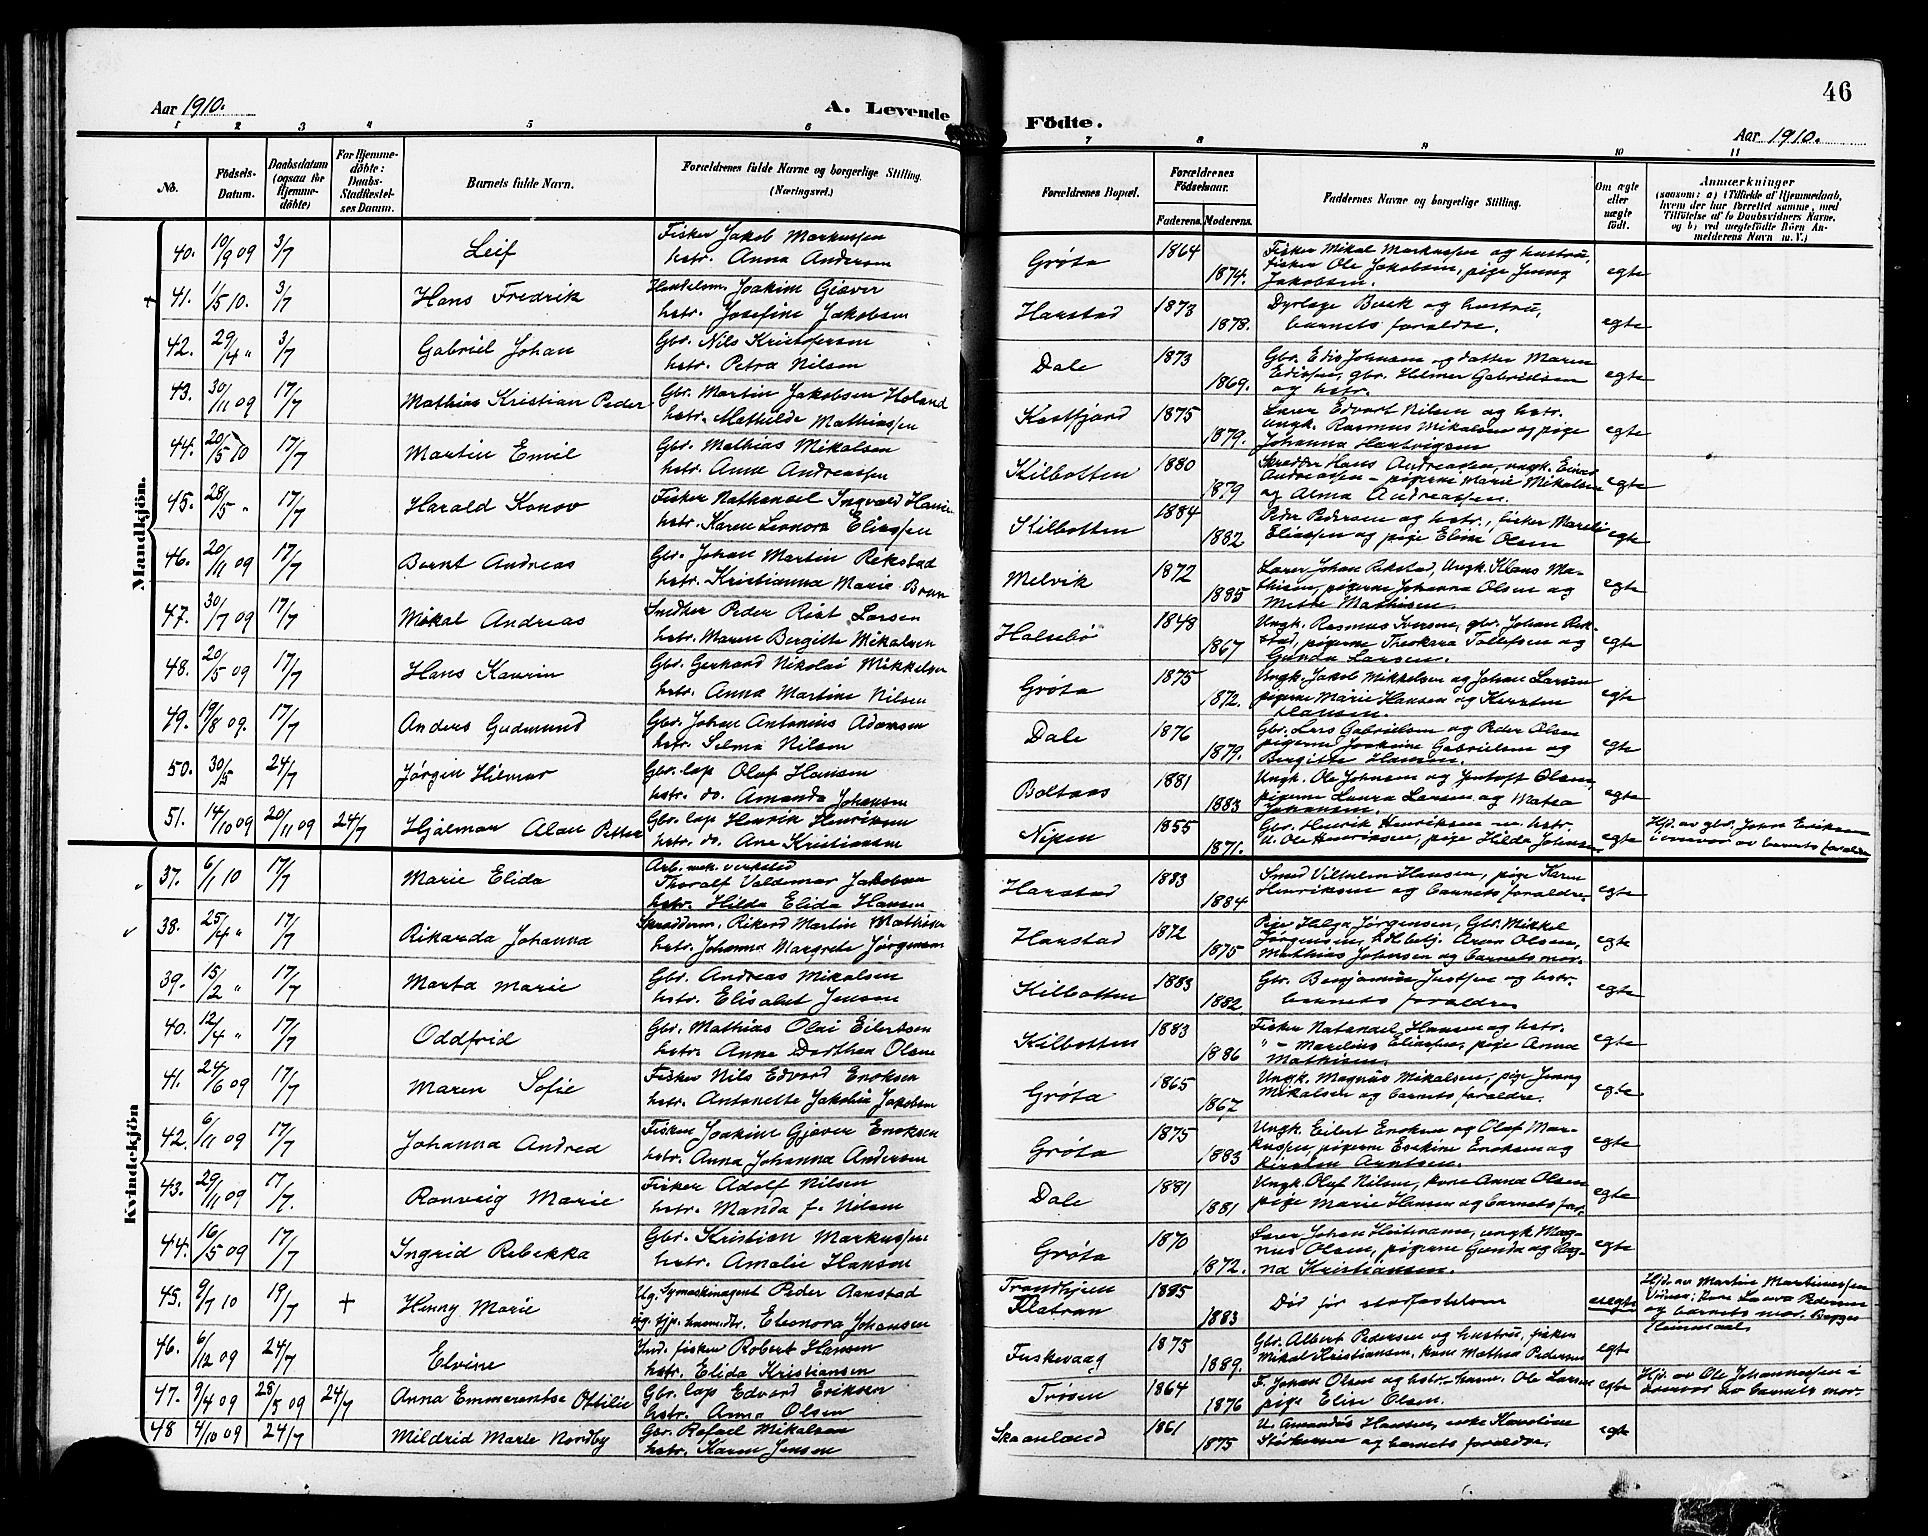 Aar 1910.
A. Levende
1 2 3 4 5 6
No.
Födsels-
Datum.
Daabsdatum
(ogsaa for
Hjemme-
döbte)
For Hjemme-
döbte:
Daabs-
Stadfæstel-
ses Datum.
Barnets fulde Navn.
Forældrenes fulde Navne og borgerlige Stilling.
(Næringsvei.)
Mandkjön.
40. 10/9 09 3/7 Leif Fisker Jakob Markussen
hstr. Anna Andersen
+ 41. 1/5 10. 3/7 Hans Fredrik Joakim Giæver
hstr. Josefine Jakobsen
42. 29/4 " 3/7 Gabriel Johan Gbr. Nils Kristofersen
hstr. Petra Nilsen
43. 30/11 09 17/7 Mathias Kristian Peder Gbr. Martin Jakobsen Holand
hstr. Mathilde Mathiassen
44. 20/5 10 17/7 Martin Emil Gbr. Mathias Mikalsen
hstr. Anna Andreassen
45. 28/5 " 17/7 Harald Konov Fisker Nathanael Ingvald Hansen
hstr. Karen Leonora Eliassen
46. 20/11 09 17/7 Bernt Andreas Gbr. Johan Martin Rekstad
hstr. Kristianna Marie Brun
47. 30/7 09 17/7 Mikal Andreas Snedker Peder Rist Larsen
hstr. Maren Bergitte Mikalsen
48. 20/5 09 17/7 Hans Kaurin Gbr. Gerhard Nikolai Mikkelsen
hstr. Anna Martine Nilsen
49. 19/8 09. 17/7 Anders Gudmund Gbr. Johan Antonius Adamsen
hstr. Selma Nilsen
50. 30/5 24/7 Jörgen Hilmar Gbr. lap Olaf Hansen
hstr. do. Amanda Johansen
51. 14/10 09 20/11 09 24/7 Hjalmar Alan Petter Gbr. lap Henrik Henriksen
hstr. do. Ane Kristiansen
Kvindekjön
37. 6/1 10 17/7 Marie Elida Arb. mek. verksted
Thoralf Valdemar Jakobsen
hstr. Hilda Elida Hansen
38. 25/4 " 17/7 Rikarda Johanna Skrædderm. Rikard Martin Mathisen
hstr. Johanna Margrete Jørgensen
39. 15/2 " 17/7 Marta Marie Gbr. Andreas Mikalsen
hstr. Elisabet Jensen
40. 12/4 " 17/7 Oddfrid Gbr. Mathias Olai Eilertsen
hstr. Anne Dorthea Olsen
41. 24/6 09 17/7 Maren Sofie Fisker Nils Edvard Enoksen
hstr. Antonette Jakobia Jakobsen
42. 6/11 09 17/7 Johanna Andrea Fisker Joakim Gjæver Enoksen
hstr. Anna Johanna Andersen
43. 29/11 09 17/7. Ronveig Marie Fisker Adolf Nilsen
hstr. Manda f. Nilsen
44. 16/5 09 17/7 Ingrid Rebekka Gbr. Kristian Markussen
hstr. Amalie Hansen
45. 9/7 10 19/7 + Henny Marie Ug. Symaskinagent Peder Aanstad
ug. tjp. husm.dtr. Eleonora Johansen
46. 6/12 09 24/7 Elvine Ind. fisker Robert Hansen
hstr. Elida Kristiansen
47. 9/4 09 28/5 09 24/7 Anna Emmerentse Ottilie Gbr. lap Edvard Eriksen
hstr. Anna Olsen
48 4/10 09 24/7 Mildrid Marie Nordby Gbr. Rafael Mikalsen
hstr. Karen Jensen
46
Födte.
Aar 1910.
7 8 9 10 11
Forældrenes Bopæl.
Forældrenes
Födselsaar.
Faderens. Moderens.
Faddernes Navne og borgerlige Stilling.
Om ægte
eller
uægte
födt.
Anmærkninger
(saasom: a) i Tilfælde af Hjemmedaab,
hvem der har forrettet samme, med
Tilföielse af to Daabsvidners Navne,
og b) ved uægtefödte Börn An-
melderens Navn m. V.)
Grøta 1864 1874. Fisker Mikal Markussen og hustru,
fisker Ole Jakobsen, pige Jenny
Jakobsen. egte
Harstad 1873 1878. Dyrlæge Beck og hustru,
barnets forældre. egte
Dale 1873 1869. Gbr. Edis Johnsen og datter Maren
Edissen, gbr. Helmer Gabrielsen
og hstr. egte
Kastfjord 1875 1879. Lærer Edvart Nilsen og hstr.
Ungk. Rasmus Mikalsen og pige
Johanna Hartvigsen egte
Kilbotten 1880 1879 Skrædder Hans Andreassen, ungk. Einar
Andreassen - pigerne Marie Mikalsen
og Alma Andreassen. egte
Kilbotten 1884 1882 Peder Pedersen og hstr., fisker Marelius
Eliassen og pige Eline Olsen egte
Melvik 1872 1885 Lærer Johan Rekstad, Ungk. Klaus Ma-
thisen, pigerne Johanna Olsen og
Mathisen. egte
Halsebø 1848 1867 Ungk. Rasmus Iversen, gbr. Johan Rek-
stad, pigerne Theokara Tollefsen og
Gunda Larsen. egte
Grøta 1875 1872. Ungk. Jakob Mikkelsen og Johan Larsen
pigerne Marie Hansen og Kirsten
Hansen. egte
Dale 1876 1879. Gbr. Lars Gabrielsen og Peder Olsen
pigerne Joakine Gabrielsen og
Bergitte Hansen. egte
Boltaas 1881 1883 Ungk. Ole Johnsen og Jentoft Olsen,
pigerne Laura Larsen og Matea
Johansen. egte
Nipen 1855 1871. Gbr. Henrik Henriksen m. hstr.
U. Ole Henriksen, pige Hilda Johnsen egte Hjd. av gbr. John Eriksen
i nærvær av barnets forældre
Harstad 1883 1884 Smed Vilhelm Hansen, pige Karen
Henriksen og barnets forældre. egte
Harstad 1872 1875 Pige Helga Jørgensen, Gbr. Mikkel
Jørgensen, hdlbetj. Aron Olsen,
Mathias Johnsen og barnets mor. egte
Kilbotten 1883 1882 Gbr. Benjamin Justsen og hstr.
barnets forældre egte
Kilbotten 1883 1886 Fisker Natanael Hansen og hstr.
" - Marelius Eliassen, pige Anna
Mathisen. egte
Grøta 1865 1867 Ungk. Magnus Mikalsen, pige Jenny
Mikalsen og barnets forældre. egte
Grøta 1875 1883 Ungk. Eilert Enoksen og Olaf Mar-
kussen, pigerne Erikine Enoksen og
Kirsten Arntsen. egte
Dale 1881 1881 Ungk. Olaf Nilsen, kone Anna Olsen
pige Marie Hansen og barnets far. egte
Grøta 1870 1872. Lærer Johan Heitmann, ungk Mag-
nus Olsen, pigerne Gunda og Rag-
na Kristiansen. egte
Trondhjem
Klatran 1885 1883 Død før stadfæstelsen uegte Hjd. av Martin Martinussen
Vidner: Kone Laura Pedersen
og barnets mor.
Fuskevaag 1875 1889. Gbr. Albert Pedersen og hustru, fisker
Mikal Kristiansen, kone Mathea Pedersen egte
Trøsen 1864 1876 F. Johan Olsen og hstr. Ole Larsen
pige Eline Olsen. egte Hjd. av Ole Johannessen i
nærvær av barnets mor.
Skaanland 1861 1875 U. Amandus Hansen, enke Karoline
Størkersen og barnets forældre. egte